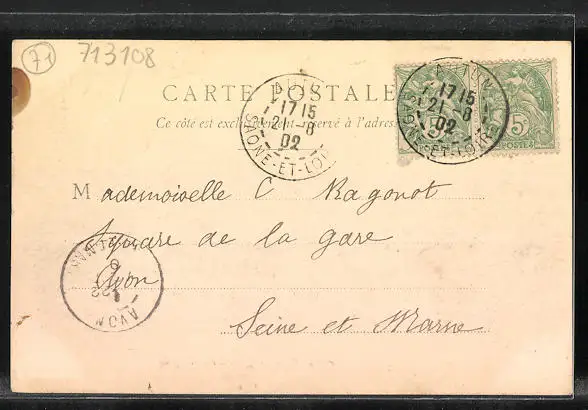 71
713108
CARTE POSTALE
Ce côté est exclusivement réservé à l'adresse
AUTUN
17 15
21 - 8
02
SAONE-ET-LOIRE
AUTUN
17 15
21 - 8
02
SAONE-ET-LOIRE
5c
POSTES
Mademoiselle C Ragonot
Square de la gare
Avon
Seine et Marne
AVON
22
8